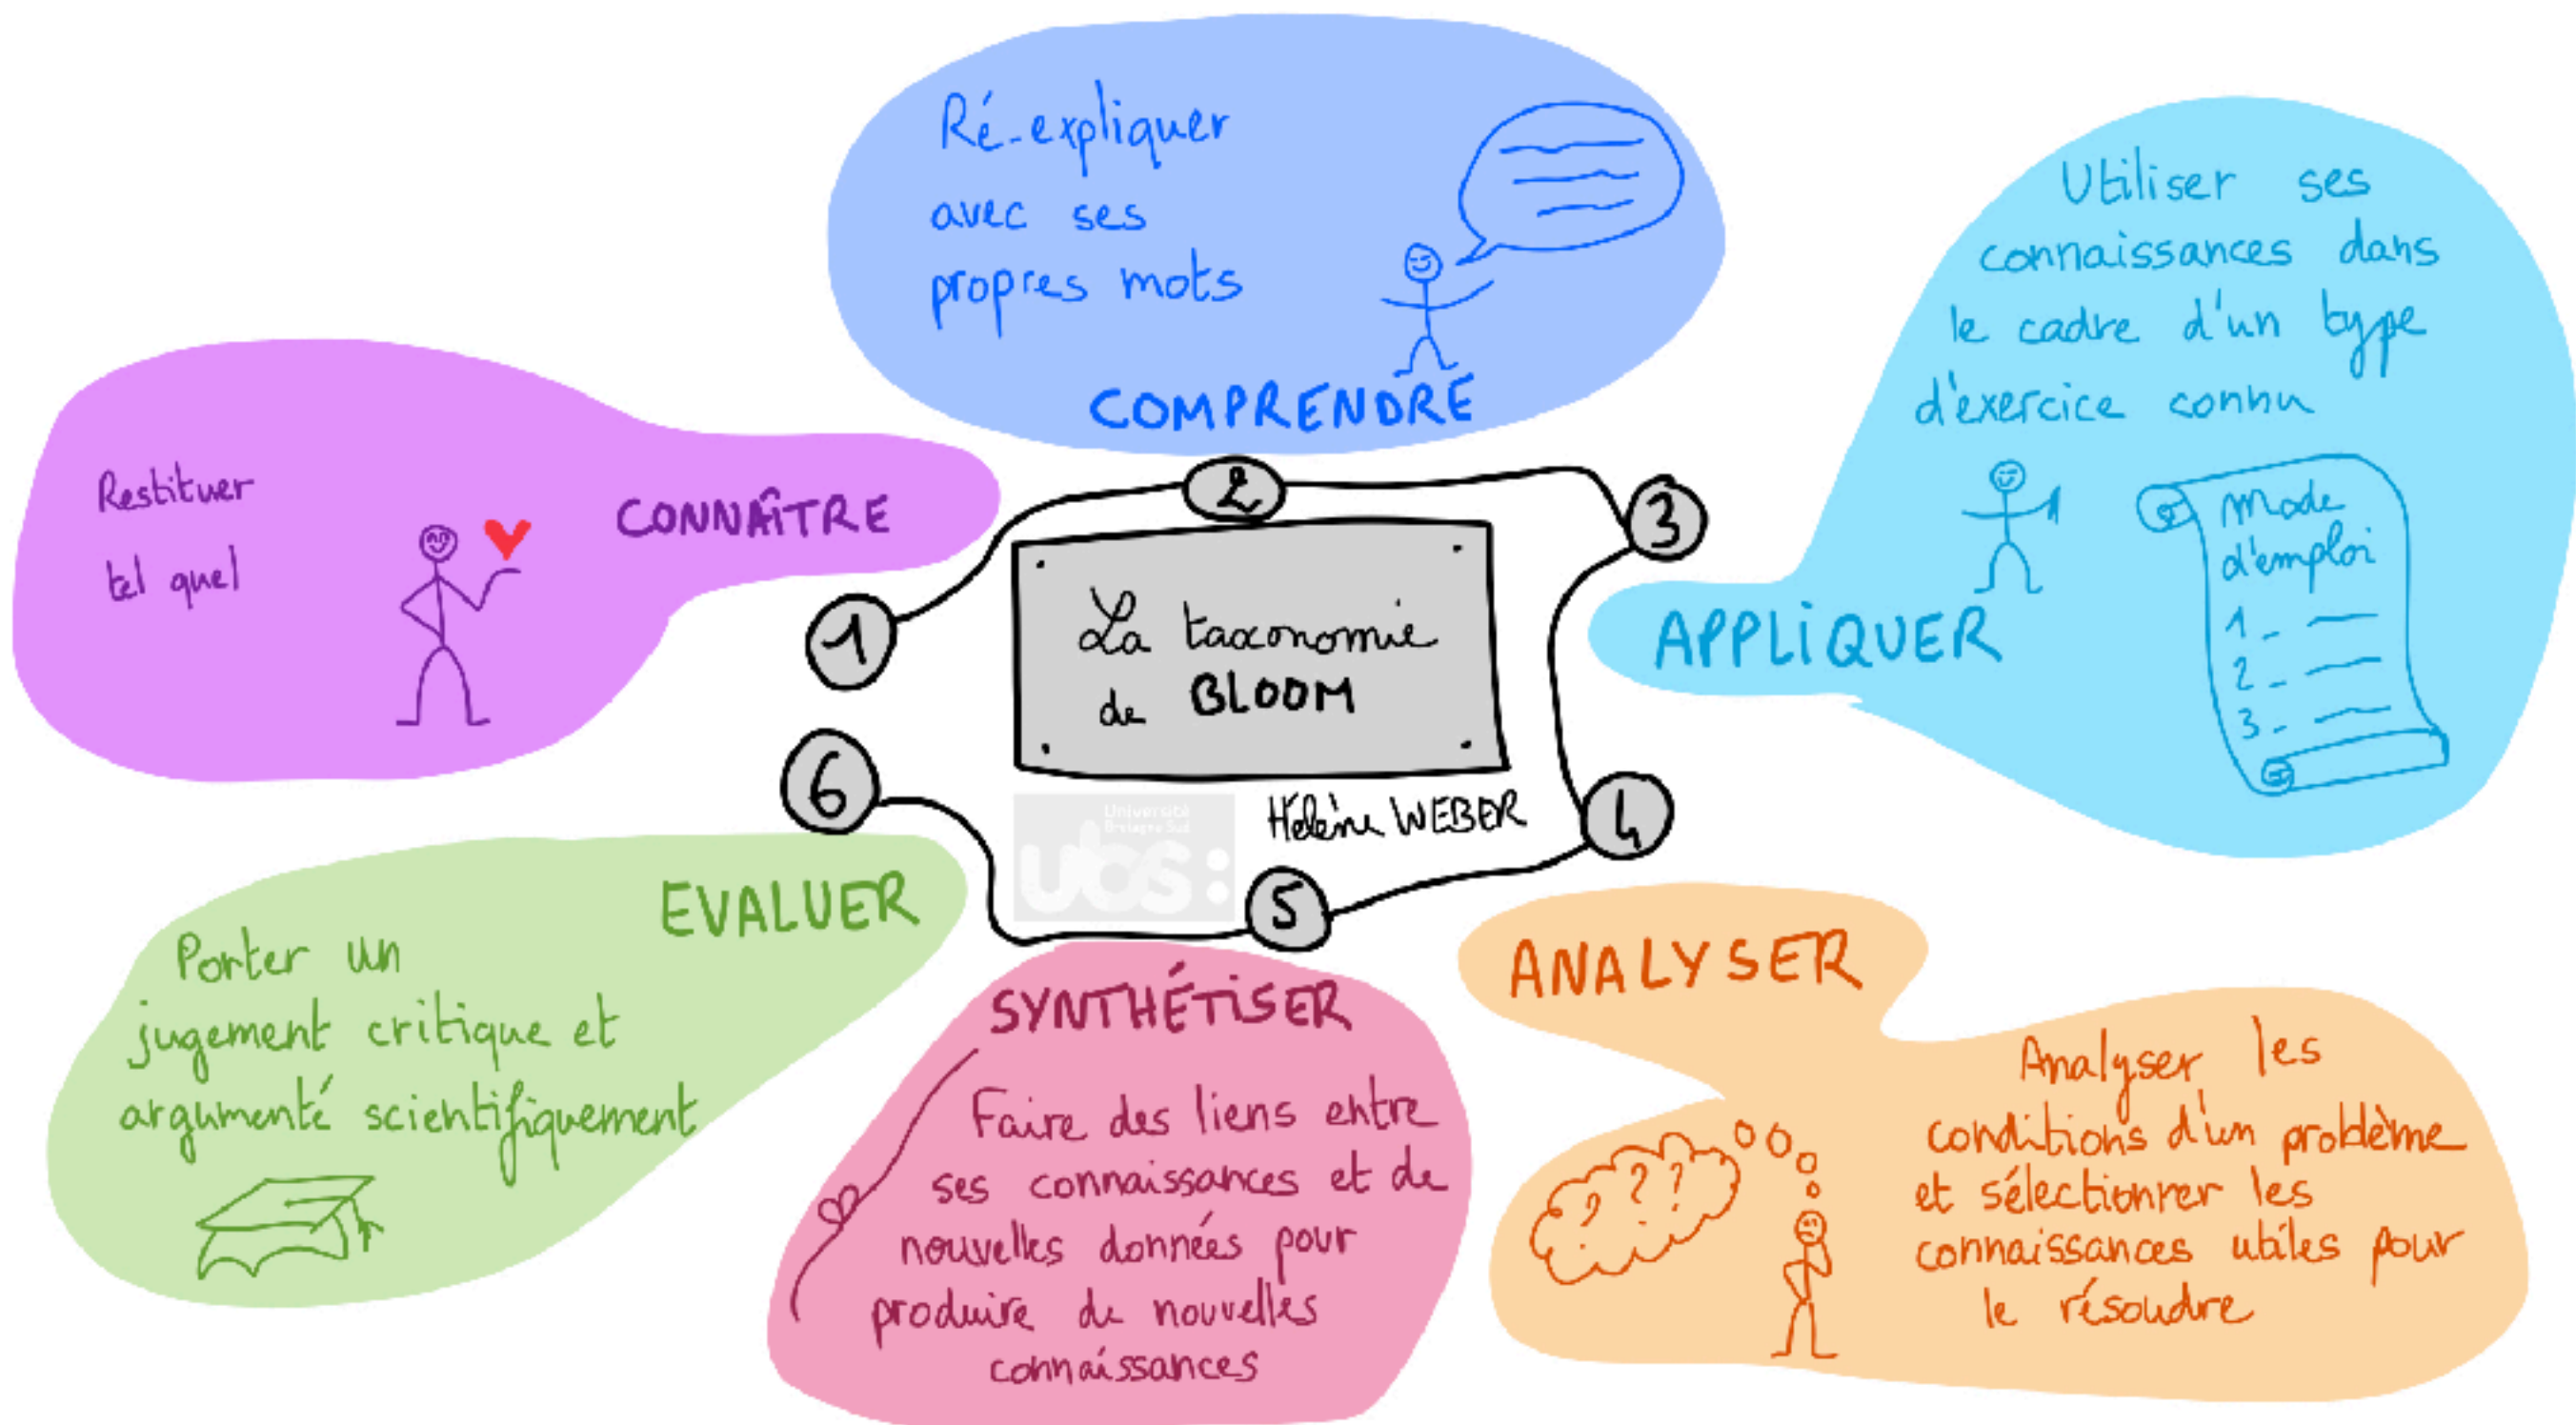 La taxonomie
de BLOOM
Hélène WEBER
Université
Bretagne Sud
ubs:
1
CONNAÎTRE
Restituer
tel quel
2
COMPRENDRE
Ré-expliquer
avec ses
propres mots
3
APPLIQUER
Utiliser ses
connaissances dans
le cadre d'un type
d'exercice connu
Mode
d'emploi
1 -
2 -
3 -
4
ANALYSER
Analyser les
conditions d'un problème
et sélectionner les
connaissances utiles pour
le résoudre
? ? ?
5
SYNTHÉTISER
Faire des liens entre
ses connaissances et de
nouvelles données pour
produire de nouvelles
connaissances
6
EVALUER
Porter un
jugement critique et
argumenté scientifiquement